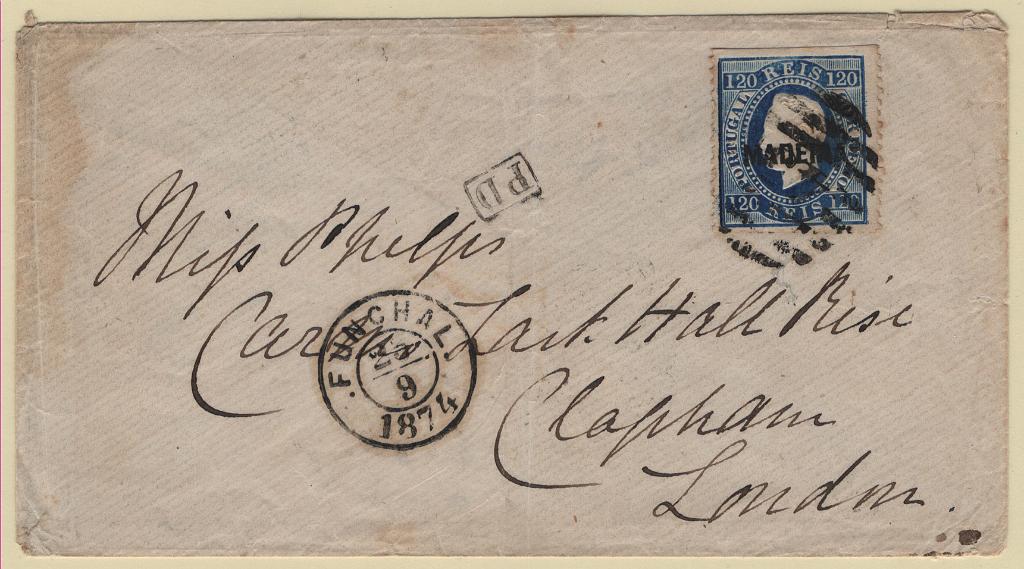 120 REIS 120
PORTUGAL
MADEIRA
120 REIS 120
PD
Miss Phelps
Lark Hall Rise
Clapham
London.
FUNCHAL
23
9
1874